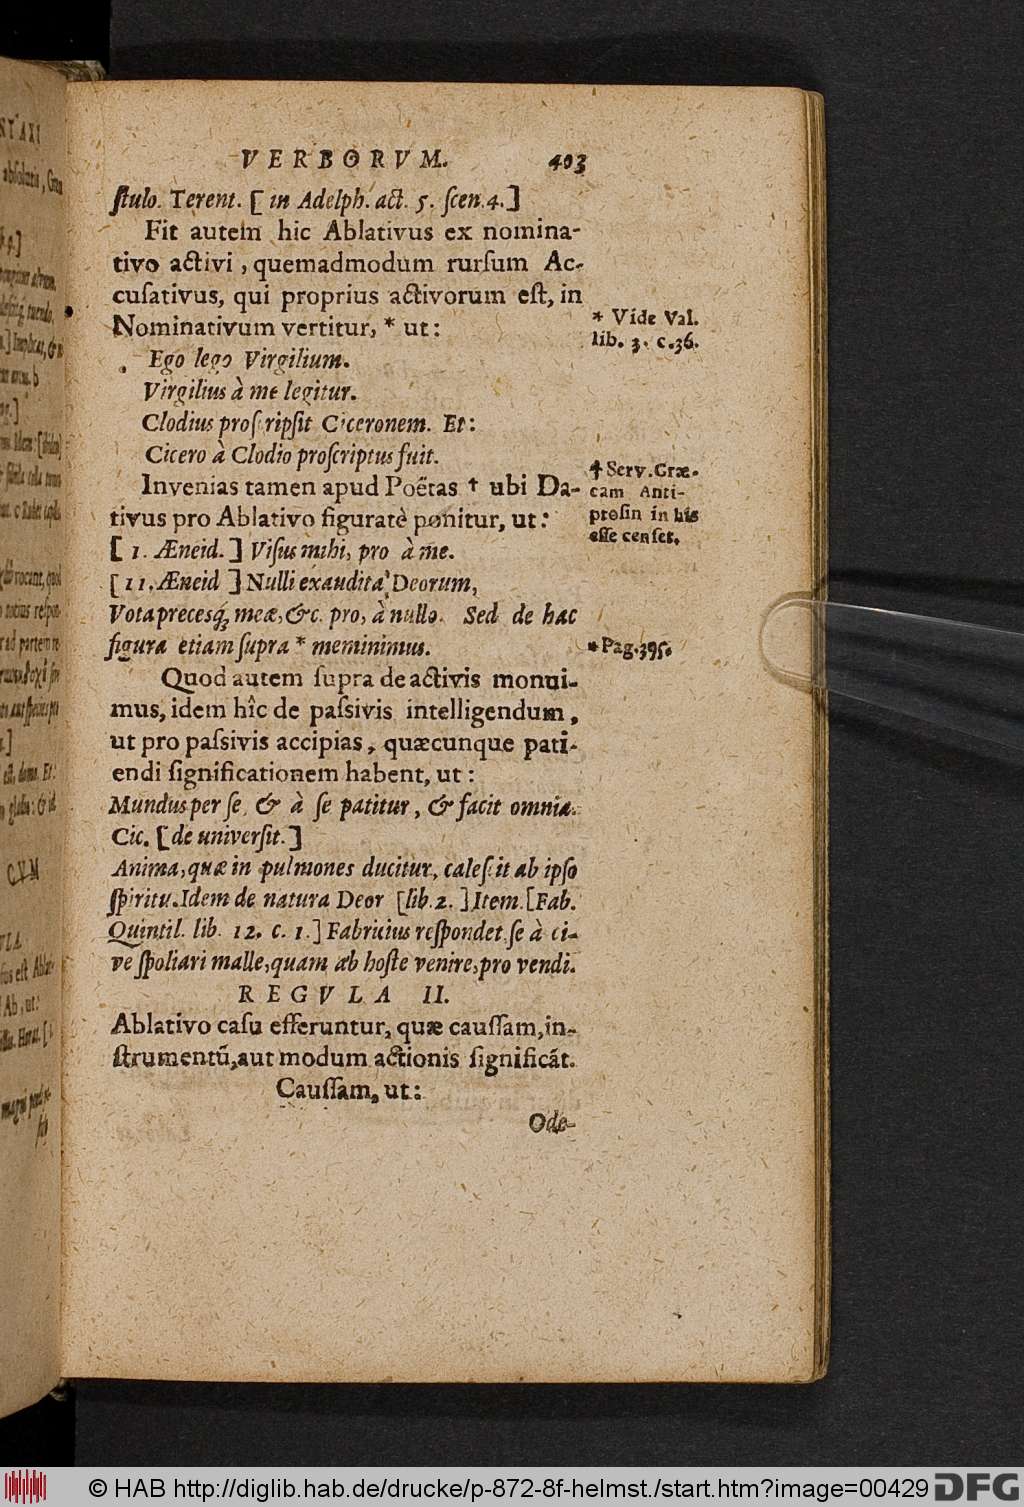 VERBORVM. 403
ſtulo. Terent. [ in Adelph. act. 5. ſcen.4.]
Fit autem hic Ablativus ex nomina-
tivo activi, quemadmodum rurſum Ac-
cuſativus, qui proprius activorum eſt, in
Nominativum vertitur, * ut:
* Vide Val.
lib. 3. c.36.
Ego lego Virgilium.
Virgilius à me legitur.
Clodius proſcripſit Ciceronem. Et:
Cicero à Clodio proſcriptus fuit.
Invenias tamen apud Poëtas † ubi Da-
tivus pro Ablativo figuratè ponitur, ut:
† Serv. Græ-
cam Anti-
ptoſin in his
eſſe cenſet.
[ 1. Æneid. ] Viſus mihi, pro à me.
[ 11. Æneid ] Nulli exaudita Deorum,
Vota precesq́; meæ, &c. pro, à nullo. Sed de hac
figura etiam ſupra * meminimus.
* Pag.395.
Quod autem ſupra de activis monui-
mus, idem hîc de paſsivis intelligendum,
ut pro paſsivis accipias, quæcunque pati-
endi ſignificationem habent, ut:
Mundus per ſe, & à ſe patitur, & facit omnia.
Cic. [ de univerſit.]
Anima, quæ in pulmones ducitur, caleſcit ab ipſo
ſpiritu. Idem de natura Deor [lib.2. ] Item. [Fab.
Quintil. lib. 12. c. 1.] Fabricius reſpondet ſe à ci-
ve ſpoliari malle, quam ab hoſte venire, pro vendi.
REGVLA II.
Ablativo caſu efferuntur, quæ cauſſam, in-
ſtrumentũ, aut modum actionis ſignificãt.
Cauſſam, ut:
Ode-
© HAB http://diglib.hab.de/drucke/p-872-8f-helmst./start.htm?image=00429 DFG